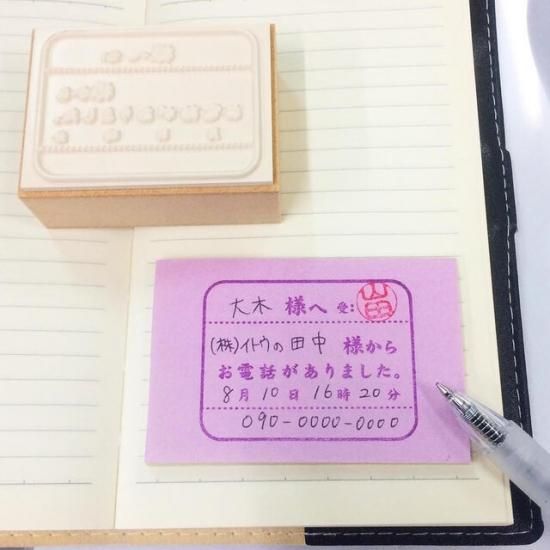 大木 様へ 受: 山田
(株)イトウの 田中 様から
お電話がありました。
8月 10日 16時 20分
090-0000-0000